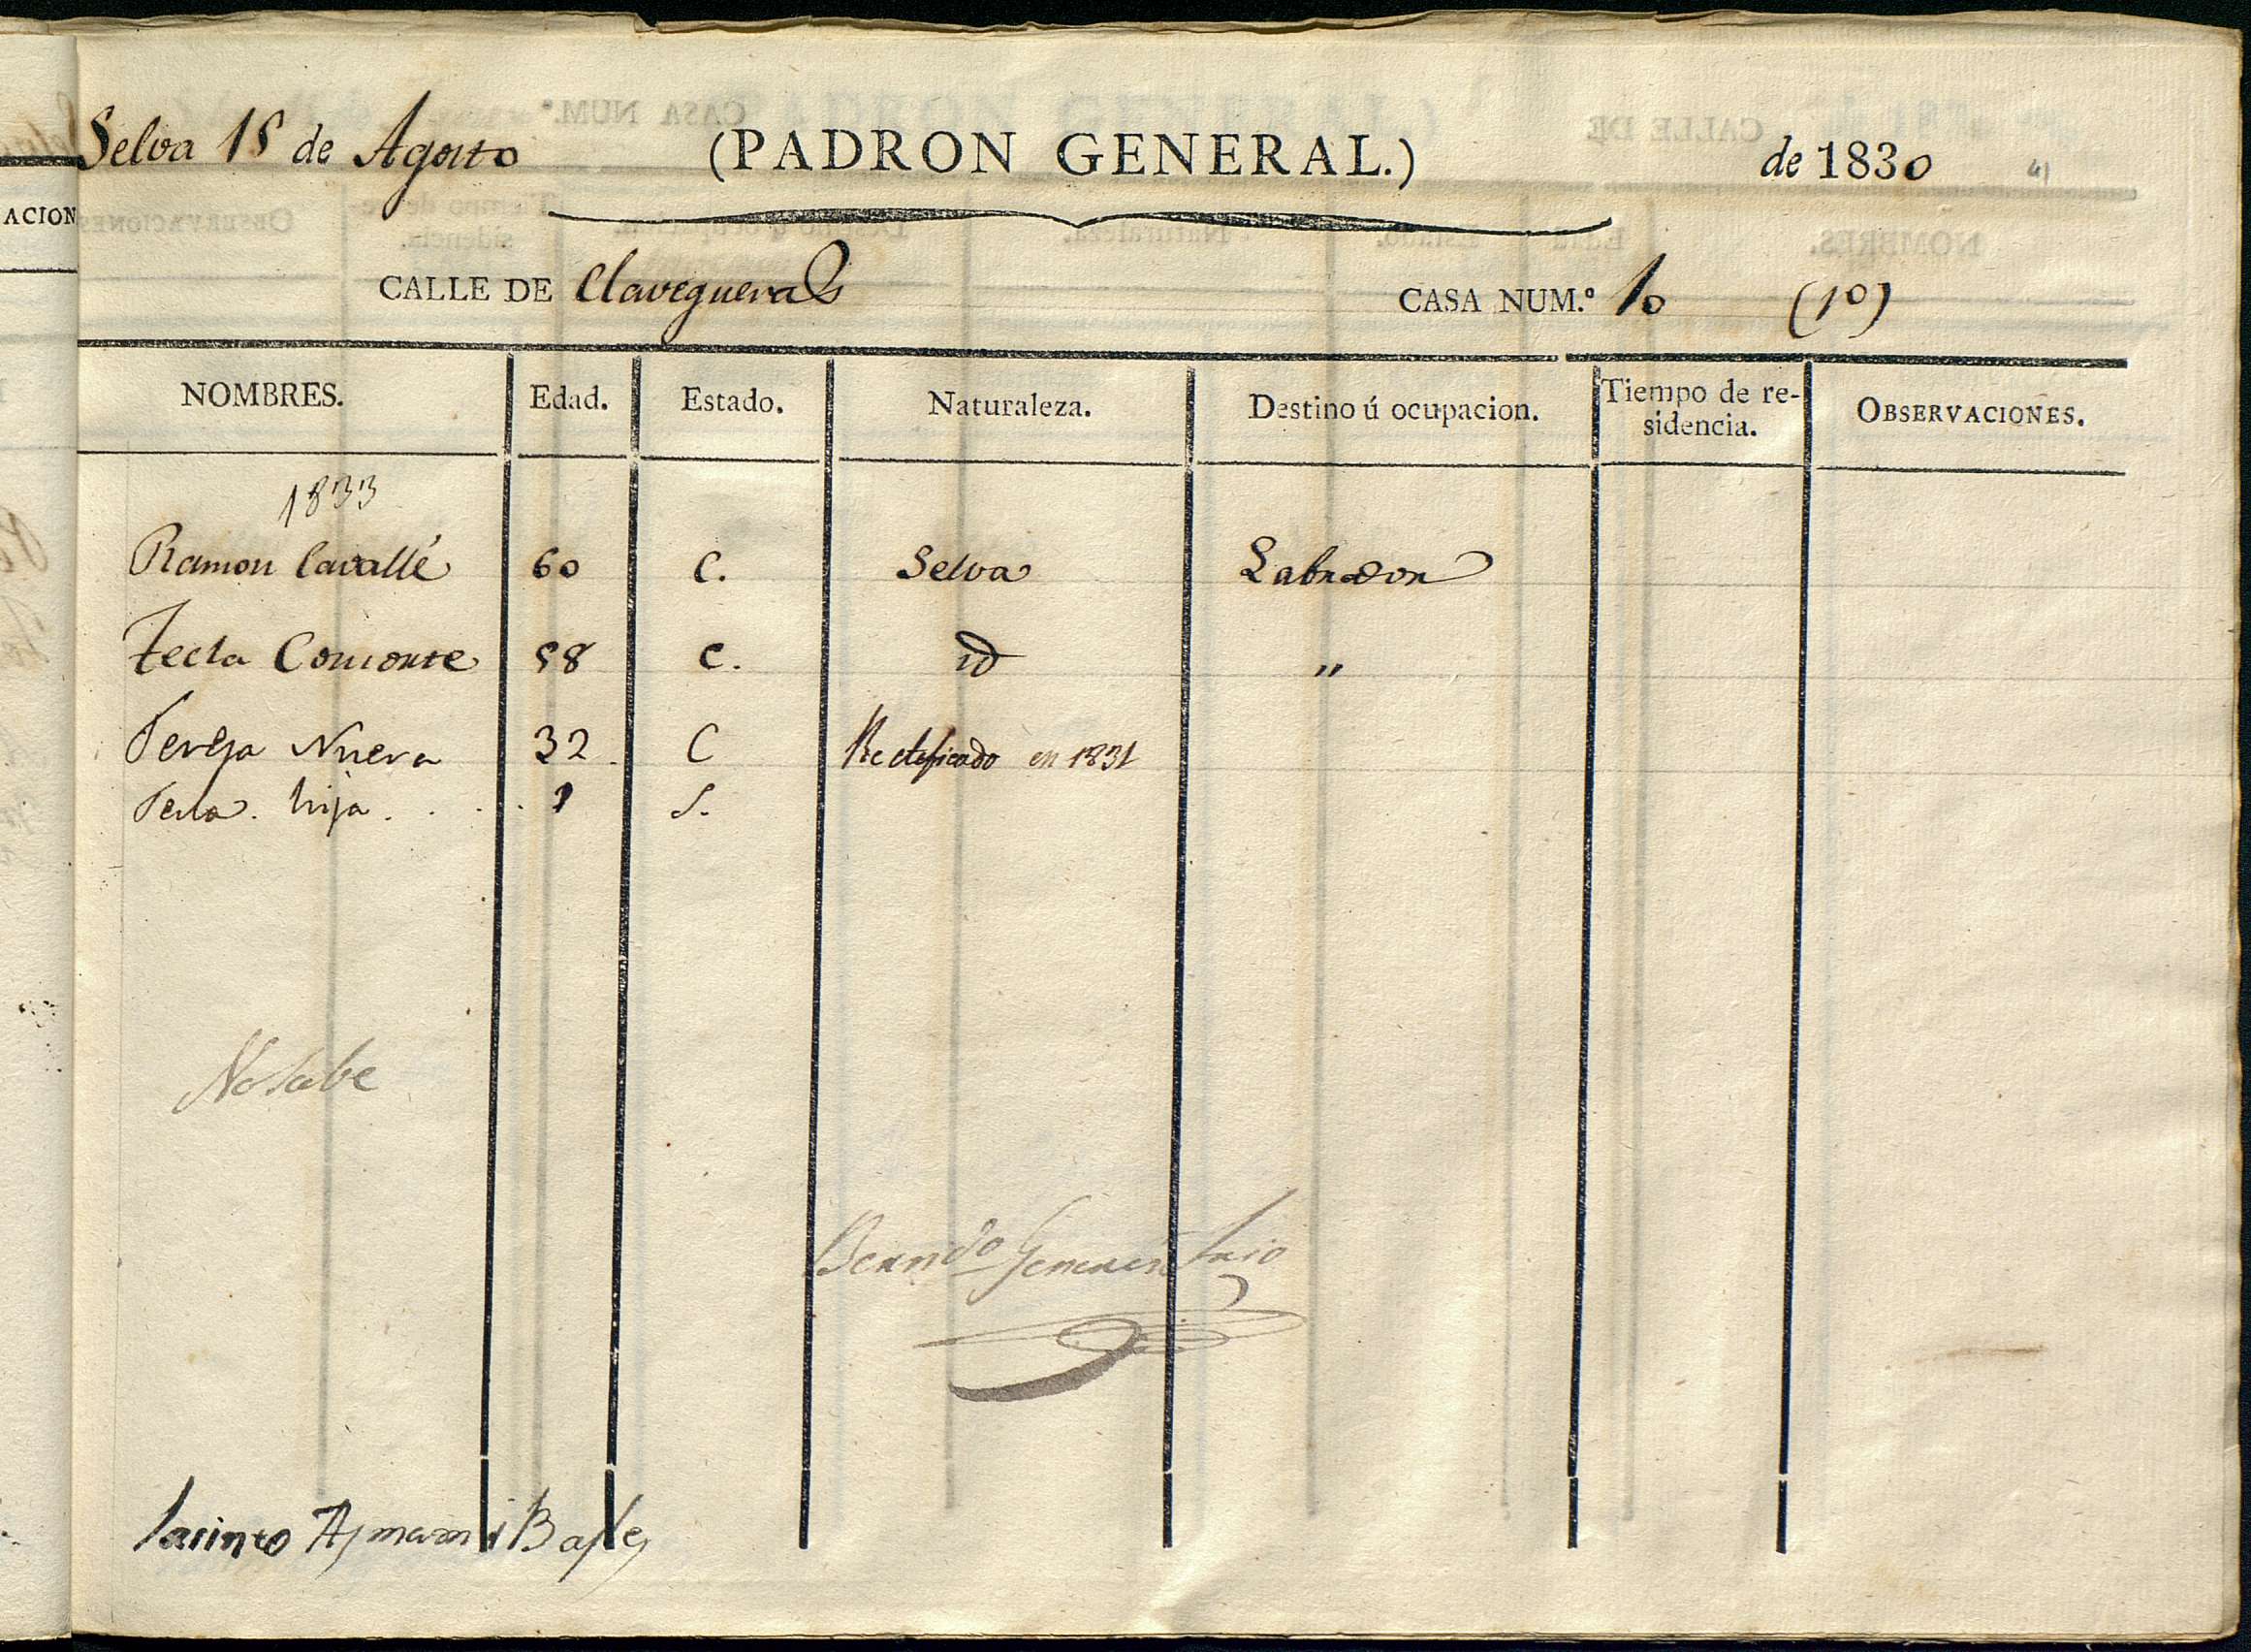 Selva 15 de Agosto (PADRON GENERAL.) de 1830 41
CALLE DE Clavegueras CASA NUM.º 10 (10)
NOMBRES. Edad. Estado. Naturaleza. Destino ú ocupacion. Tiempo de re-
sidencia. OBSERVACIONES.
1833
Ramon Cavallé 60 C. Selva Labrador
Tecla Consorte 58 C. id "
Teresa Nuera 32 C Rectificado en 1831
Tersa. hija . . . 1 S.
No sabe
Berndo
Jacinto Aymami Bayle
ACION